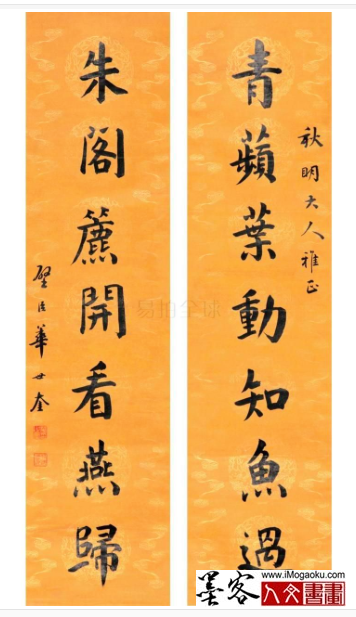 秋明大人雅正
青蘋葉動知魚過
朱閣簾開看燕歸
璧臣華世奎
易拍全球
墨客
www.iMogaoku.com
人文書畫